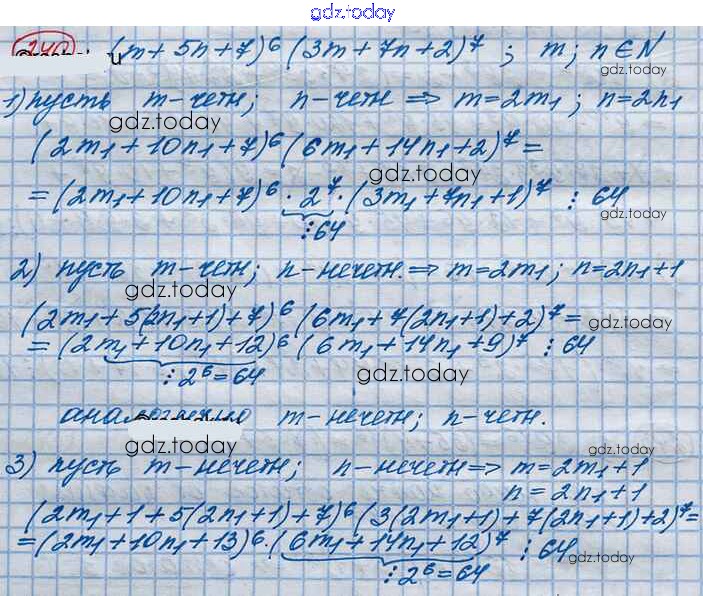 gdz.today
240 (m + 5n + 7)⁶ (3m + 7n + 2)⁷ ; m; n ∈ N
gdz.today
1) пусть m-четн; n-четн ⇒ m=2m₁; n=2n₁
gdz.today
(2m₁+10n₁+7)⁶ (6m₁+14n₁+2)⁷ =
gdz.today
= (2m₁+10n₁+7)⁶ · 2⁷ · (3m₁+7n₁+1)⁷ ⋮ 64
gdz.today
⋮ 64
2) пусть m-четн; n-нечетн. ⇒ m=2m₁; n=2n₁+1
gdz.today
(2m₁+5(2n₁+1)+7)⁶ (6m₁+7(2n₁+1)+2)⁷ =
gdz.today
= (2m₁+10n₁+12)⁶ (6m₁+14n₁+9)⁷ ⋮ 64
⋮ 2⁶=64
gdz.today
аналогично m-нечетн; n-четн.
gdz.today
gdz.today
3) пусть m-нечетн; n-нечетн ⇒ m=2m₁+1
n=2n₁+1
(2m₁+1+5(2n₁+1)+7)⁶ (3(2m₁+1)+7(2n₁+1)+2)⁷ =
= (2m₁+10n₁+13)⁶ · (6m₁+14n₁+12)⁷ ⋮ 64
gdz.today
⋮ 2⁶=64